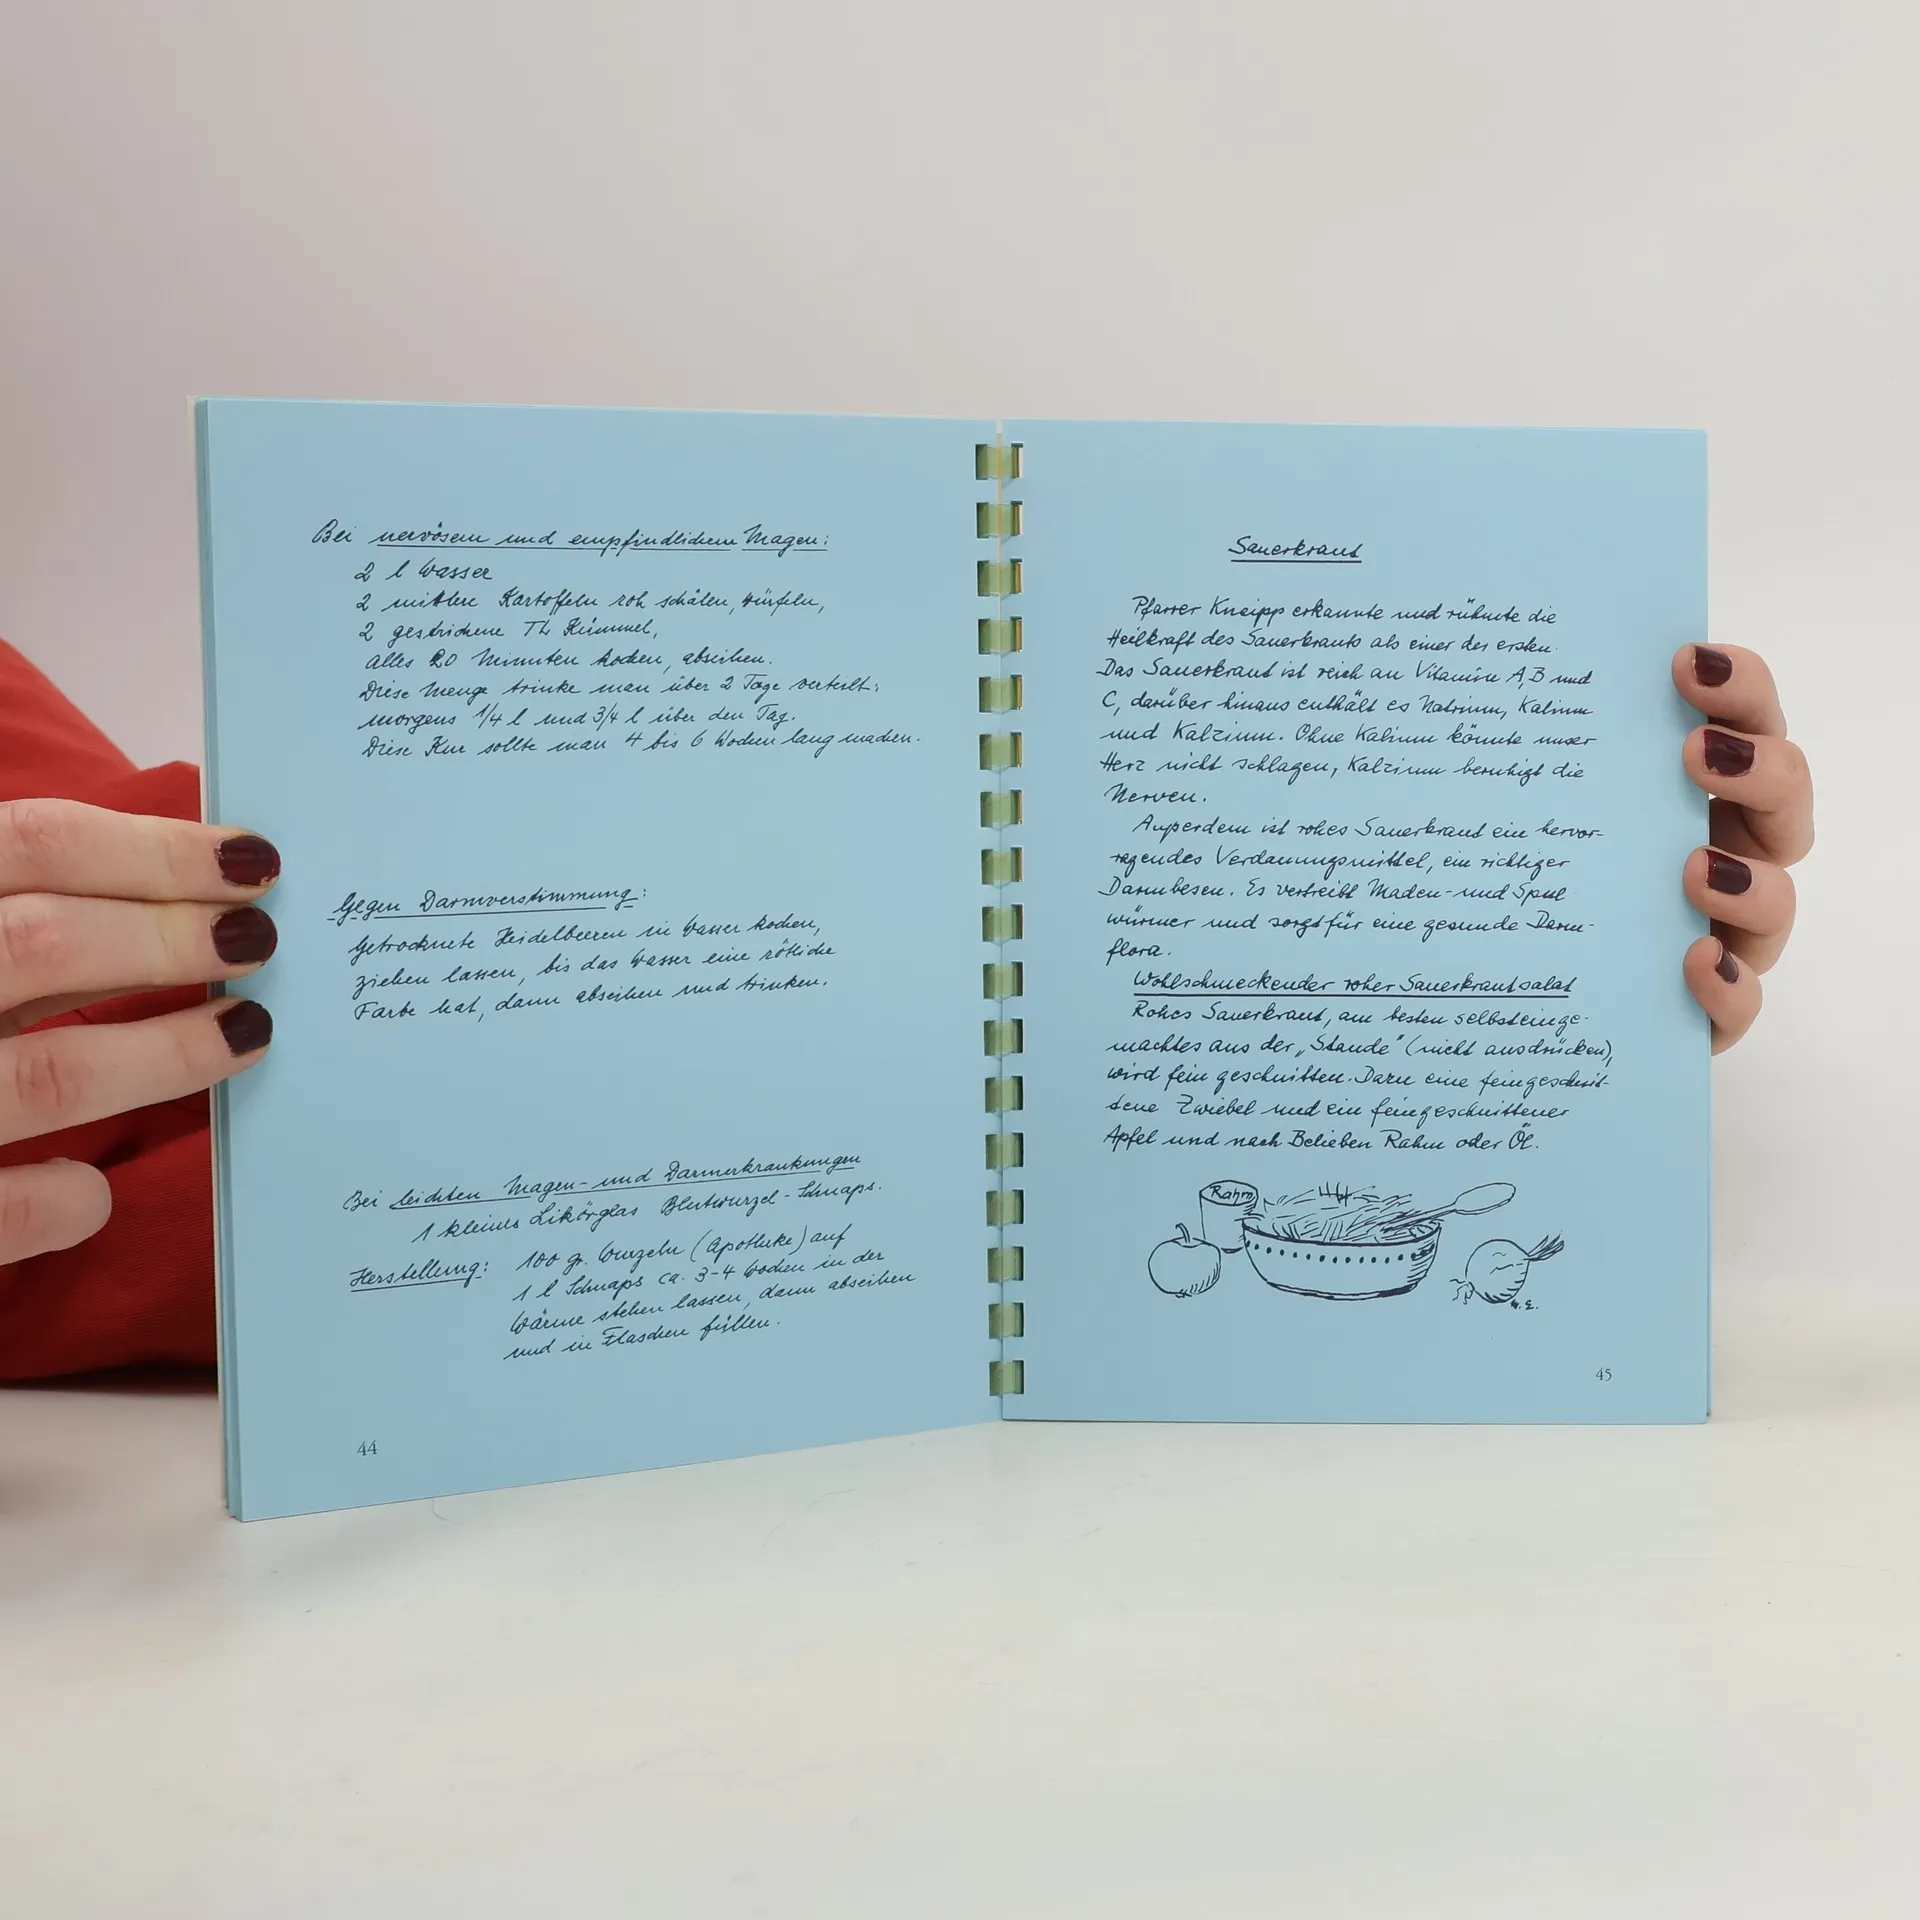 Bei nervösem und empfindlichem Magen:
2 l Wasser
2 mittlere Kartoffeln roh schälen, würfeln,
2 gestrichene TL Kümmel,
alles 20 Minuten kochen, abseihen.
Diese Menge trinke man über 2 Tage verteilt:
morgens 1/4 l und 3/4 l über den Tag.
Diese Kur sollte man 4 bis 6 Wochen lang machen.
Gegen Darmverstimmung:
Getrocknete Heidelbeeren in Wasser kochen,
ziehen lassen, bis das Wasser eine rötliche
Farbe hat, dann abseihen und trinken.
Bei leichten Magen- und Darmerkrankungen
1 kleines Likörglas Blutwurzel-Schnaps.
Herstellung: 100 gr. Wurzeln (Apotheke) auf
1 l Schnaps ca. 3-4 Wochen in der
Wärme stehen lassen, dann abseihen
und in Flaschen füllen.
44
Sauerkraut
Pfarrer Kneipp erkannte und rühmte die
Heilkraft des Sauerkrauts als einer der ersten.
Das Sauerkraut ist reich an Vitamin A, B und
C, darüber hinaus enthält es Natrium, Kalium
und Kalzium. Ohne Kalium könnte unser
Herz nicht schlagen, Kalzium beruhigt die
Nerven.
Außerdem ist rohes Sauerkraut ein hervor-
ragendes Verdauungsmittel, ein richtiger
Darmbesen. Es vertreibt Maden- und Spul-
würmer und sorgt für eine gesunde Darm-
flora.
Wohlschmeckender roher Sauerkrautsalat
Rohes Sauerkraut, am besten selbsteinge-
machtes aus der „Stande" (nicht ausdrücken),
wird fein geschnitten. Dazu eine feingeschnit-
tene Zwiebel und ein feingeschnittener
Apfel und nach Belieben Rahm oder Öl.
Rahm
45